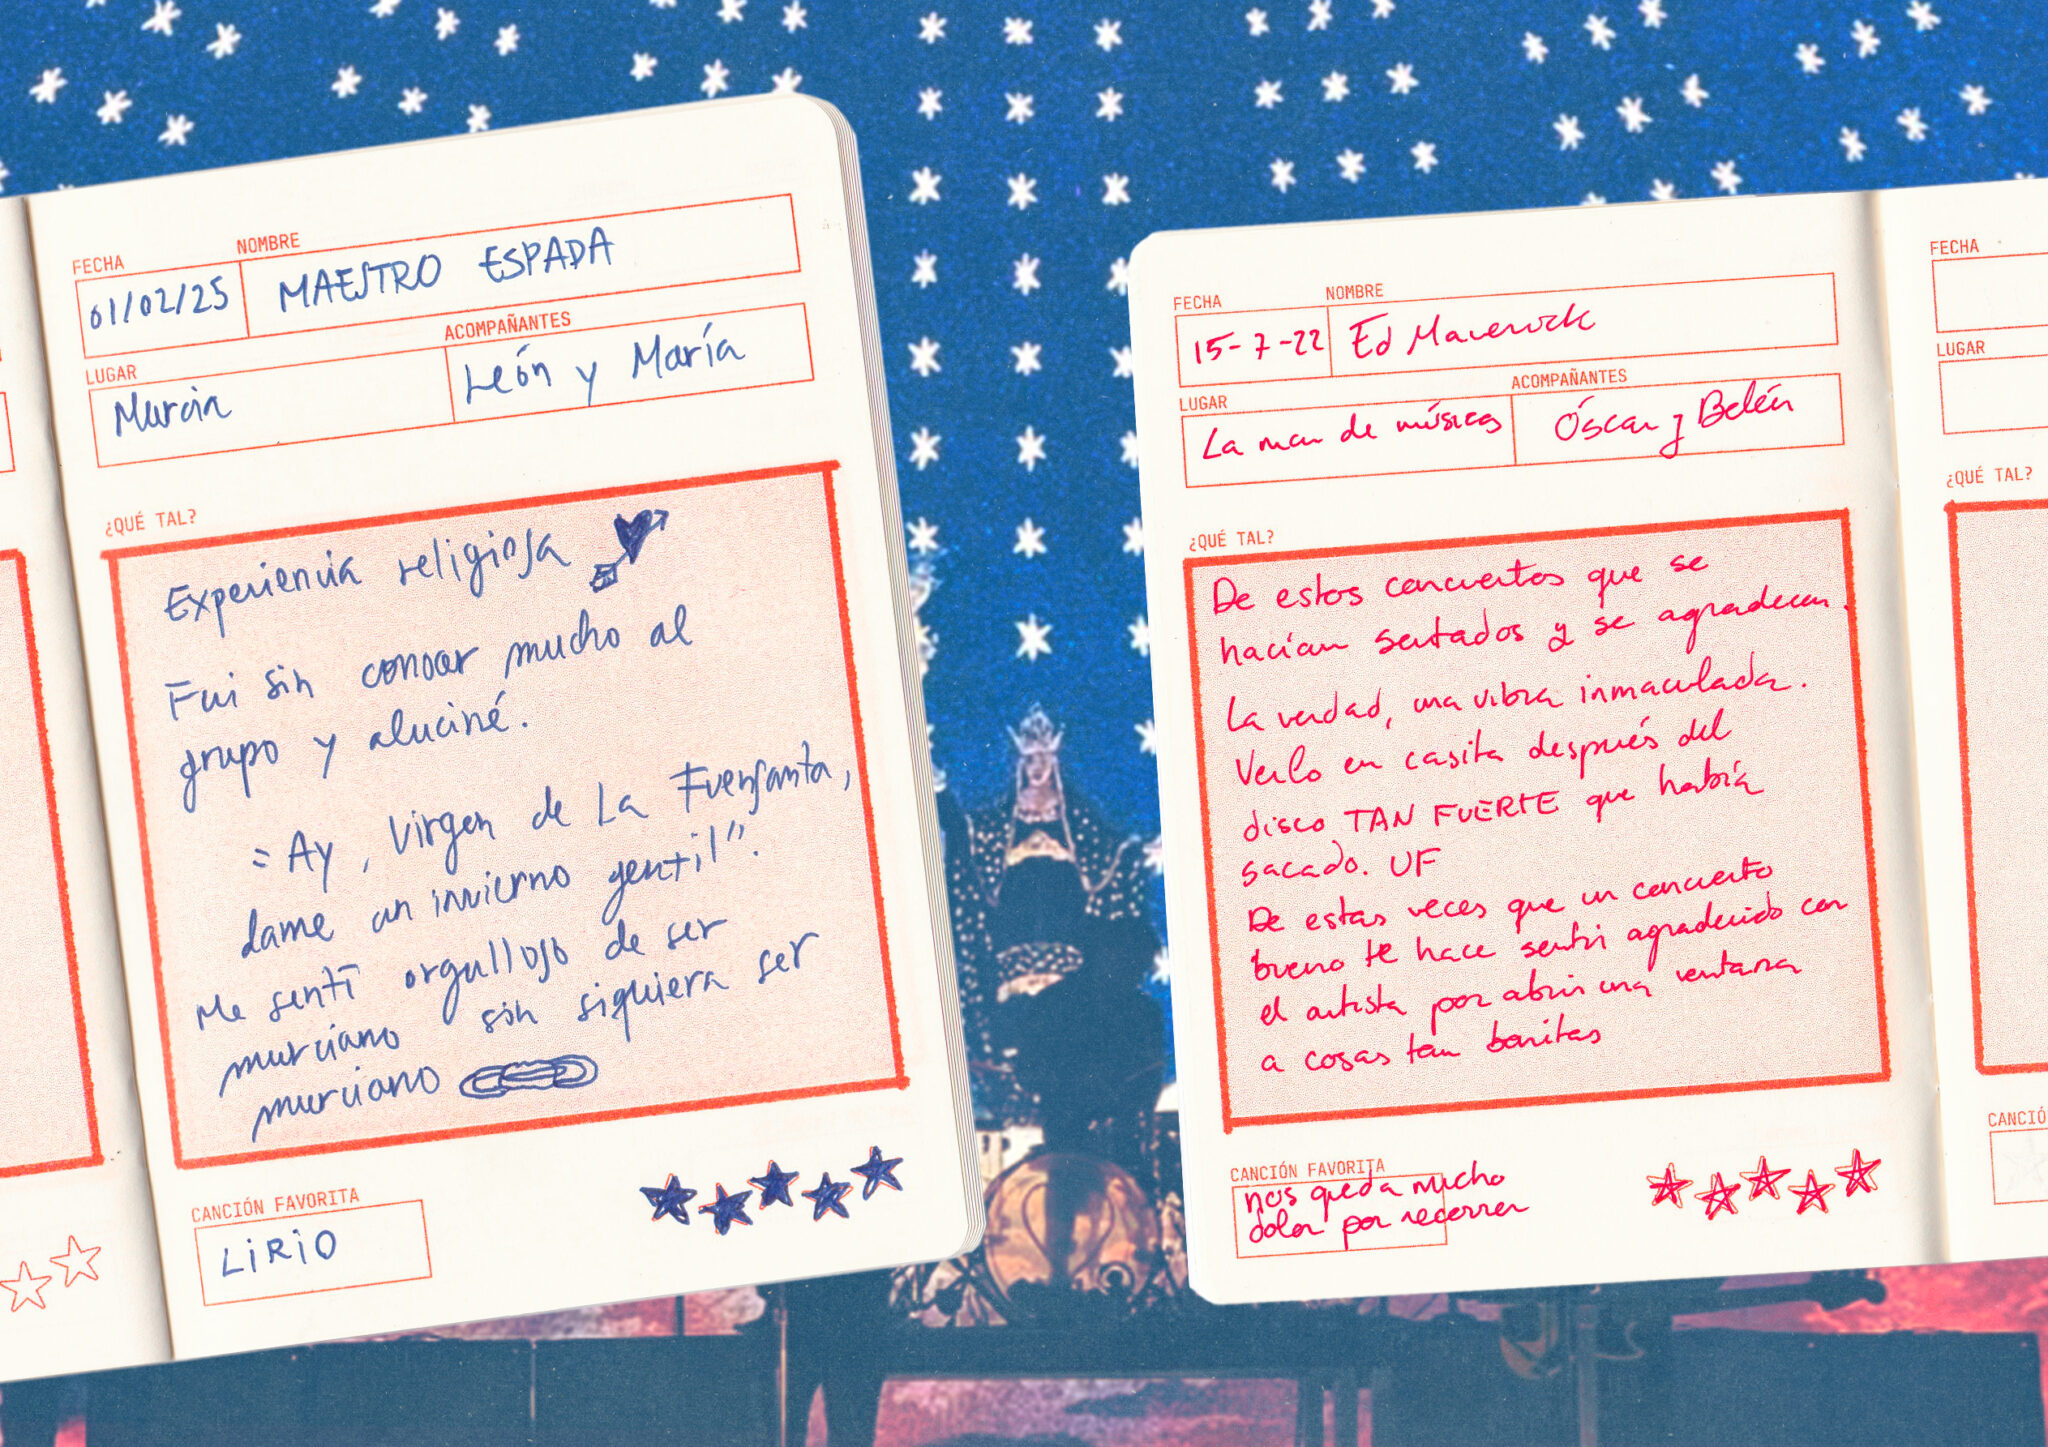 FECHA NOMBRE
01/02/25 MAESTRO ESPADA
LUGAR ACOMPAÑANTES
Murcia León y María
¿QUÉ TAL?
Experiencia religiosa
Fui sin conocer mucho al
grupo y aluciné.
"Ay, Virgen de La Fuensanta,
dame un invierno gentil".
Me sentí orgulloso de ser
murciano sin siquiera ser
murciano
CANCIÓN FAVORITA
LIRIO
FECHA NOMBRE
15-7-22 Ed Maverick
LUGAR ACOMPAÑANTES
La mar de músicas Óscar y Belén
¿QUÉ TAL?
De estos conciertos que se
hacían sentados y se agradecen.
La verdad, una vibra inmaculada.
Verlo en casita después del
disco TAN FUERTE que había
sacado. UF
De estas veces que un concierto
bueno te hace sentir agradecido con
el artista por abrir una ventana
a cosas tan bonitas
CANCIÓN FAVORITA
nos queda mucho
dolor por recorrer
FECHA
LUGAR
¿QUÉ TAL?
CANCIÓ